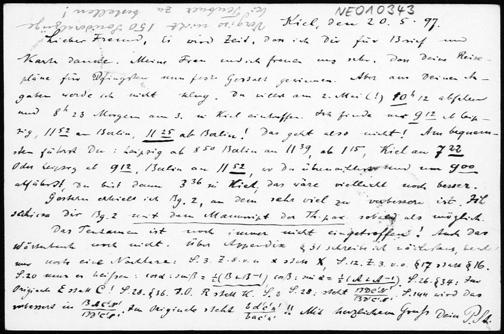 NEO10343
Vergiss nicht 150 Sonderabzüge
bei Teubner zu bestellen!
Kiel, den 20. 5. 97.
Lieber Freund, Es wird Zeit, dass ich Dir für Brief und
Karte danke. Meine Frau und ich freuen uns sehr, dass Deine Reise-
pläne für Pfingsten nun feste Gestalt gewinnen. Aber aus Deinen An-
gaben werde ich nicht klug. Du willst am 2. Mai (!) 10h 12 abfahren
und 8h 23 Morgens am 3. in Kiel eintreffen. Ich finde nur 9 12 ab Leip-
zig, 11 52 an Berlin, 11 25 ab Berlin! Das geht also nicht! Am bequem-
sten fährst Du: Leipzig ab 8 50 Berlin an 11 39, ab 1 15, Kiel an 7 22
Oder Leipzig ab 9 12, Berlin an 11 52, wo Du übernachtest und um 9 00
abfährst, Du bist dann 3 36 in Kiel, das wäre vielleicht noch besser.
Gestern erhielt ich Bg. 2, an dem sehr viel zu verbessern ist. Ich
schicke Dir Bg. 2 mit dem Manuscript der Th. par. sobald als möglich.
Das Tentamen ist noch immer nicht eingetroffen! Auch das
Wörterbuch noch nicht. Über Appendix § 31 schreibe ich nächstens, heute
nur noch eine Nachlese: S. 3. Z. 5. v. u. x statt X, S. 12. Z. 3. v. o. § 17 statt § 16.
S. 20 muss es heissen: S. 26. § 34: Im
Originale E statt C! S. 28. § 36. F. O. R statt K. S. 28. steht S. 144 wird das
verbessert in Im Originale steht !! Mit herzlichem Gruss Dein P. St.